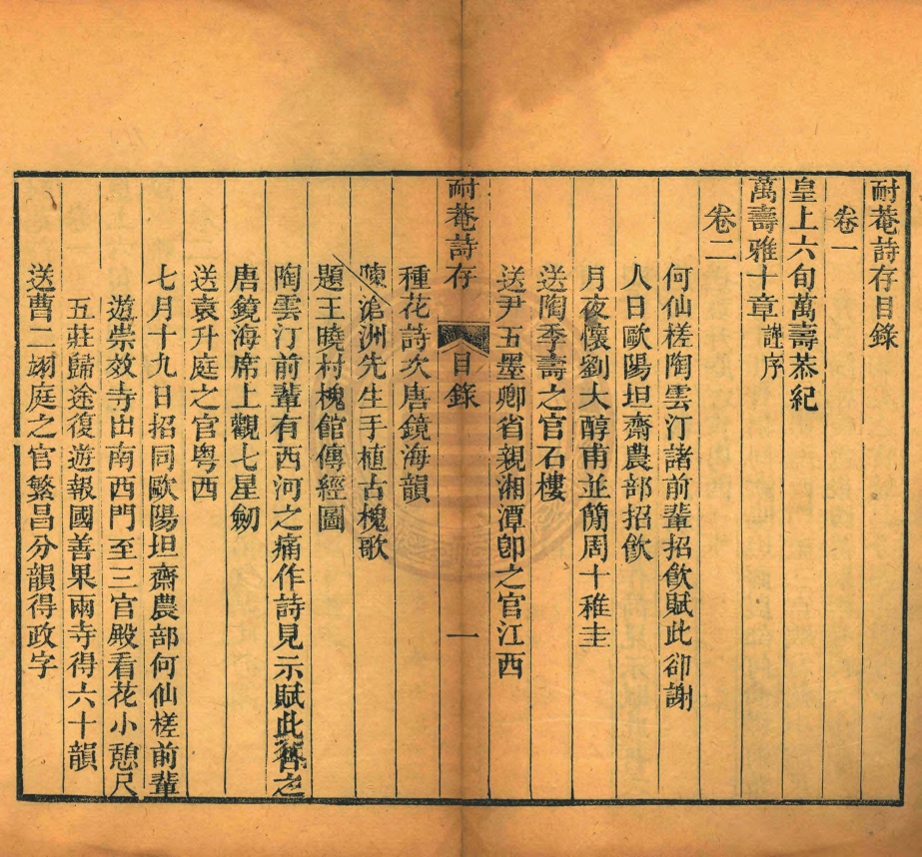 耐菴詩存目錄
卷一
皇上六旬萬壽恭紀
萬壽雅十章謹序
卷二
何仙槎陶雲汀諸前輩招飲賦此卻謝
人日歐陽坦齋農部招飲
月夜懷劉大醇甫並簡周十稚圭
送陶季壽之官石樓
送尹五墨卿省親湘潭卽之官江西
耐菴詩存
目錄
一
種花詩次唐鏡海韻
陳滄洲先生手植古槐歌
題王曉村槐館傳經圖
陶雲汀前輩有西河之痛作詩見示賦此答之
唐鏡海席上觀七星劒
送袁升庭之官粵西
七月十九日招同歐陽坦齋農部何仙槎前輩
遊崇效寺出南西門至三官殿看花小憩尺
五莊歸途復遊報國善果兩寺得六十韻
送曹二翊庭之官繁昌分韻得政字